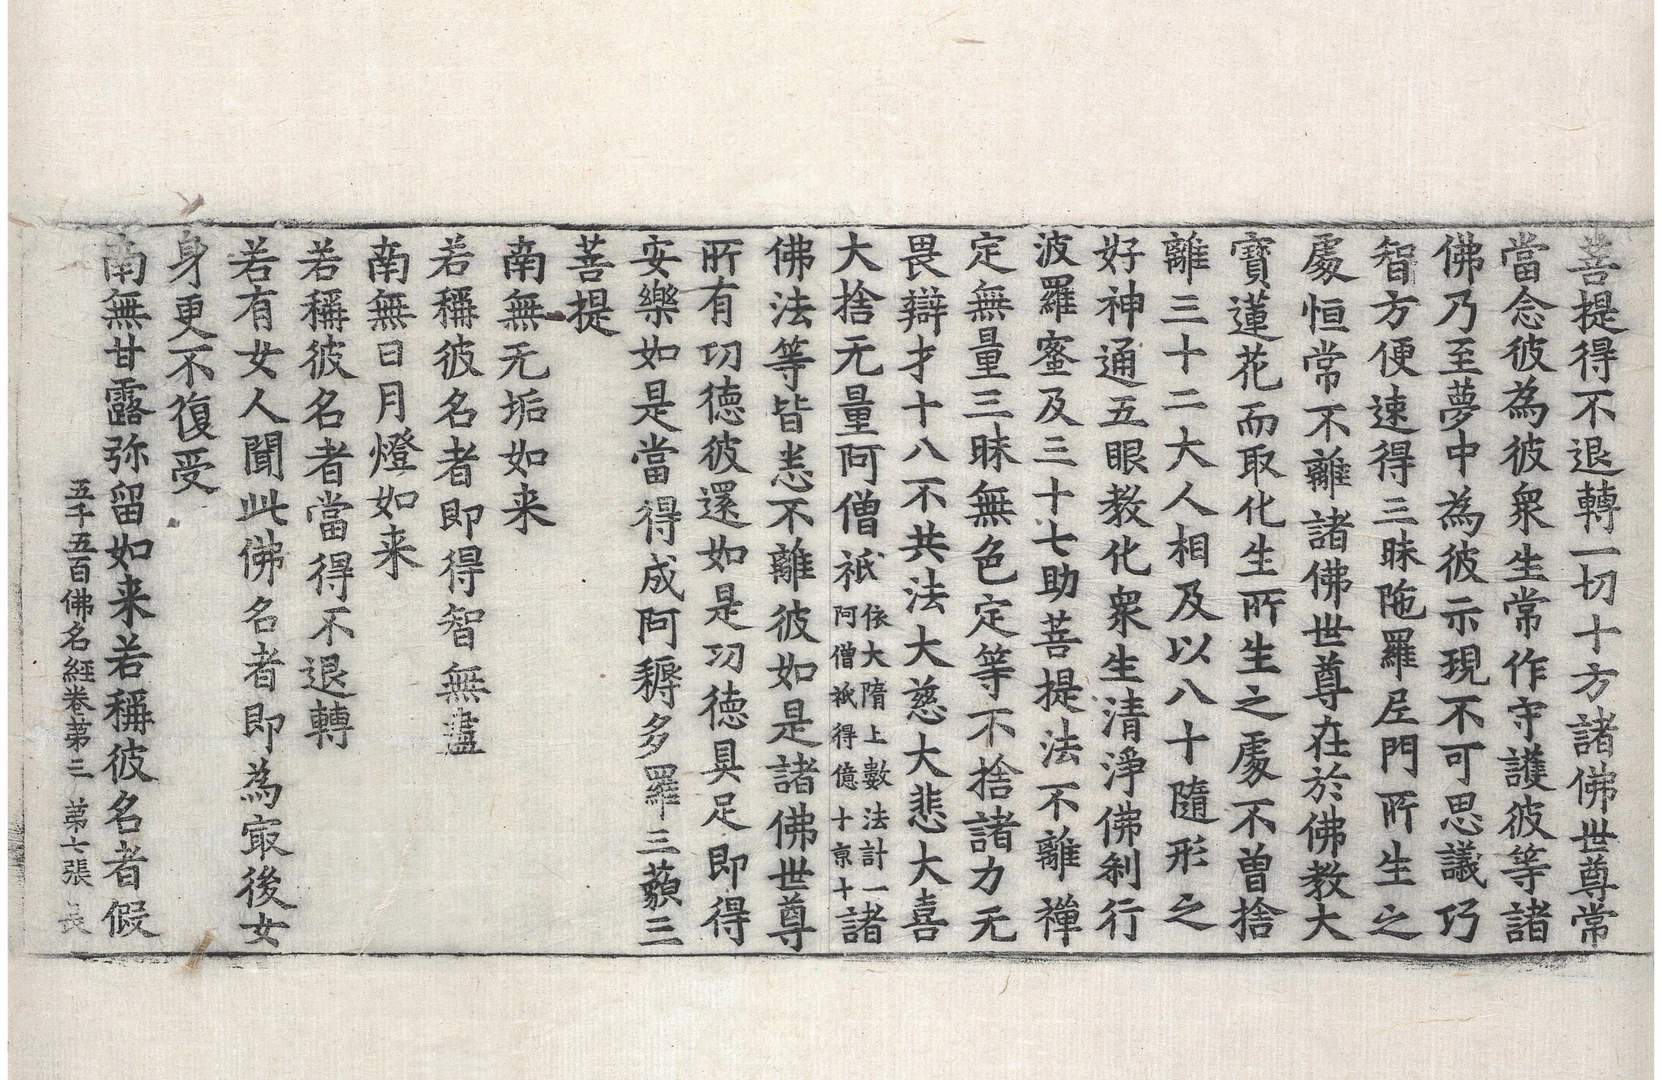 菩提得不退轉一切十方諸佛世尊常
當念彼為彼衆生常作守護彼等諸
佛乃至夢中為彼示現不可思議巧
智方便速得三昧陁羅层門所生之
處恒常不離諸佛世尊在於佛教大
寳蓮花而取化生所生之處不曽捨
離三十二大人相及以八十隨形之
好神通五眼教化衆生清淨佛刹行
波羅蜜及三十七助菩提法不離禪
定無量三昧無色定等不捨諸力无
畏辯才十八不共法大慈大悲大喜
大捨无量阿僧祇依大隋上數法計一阿僧祇得億十京十諸
佛法等皆悉不離彼如是諸佛世尊
所有功德彼還如是功德具足即得
安樂如是當得成阿耨多羅三藐三
菩提
南無无垢如来
若稱彼名者即得智無盡
南無日月燈如来
若稱彼名者當得不退轉
若有女人聞此佛名者即為㝡後女
身更不復受
南無甘露弥留如来若稱彼名者假
五千五百佛名經卷苐三 苐七張 長